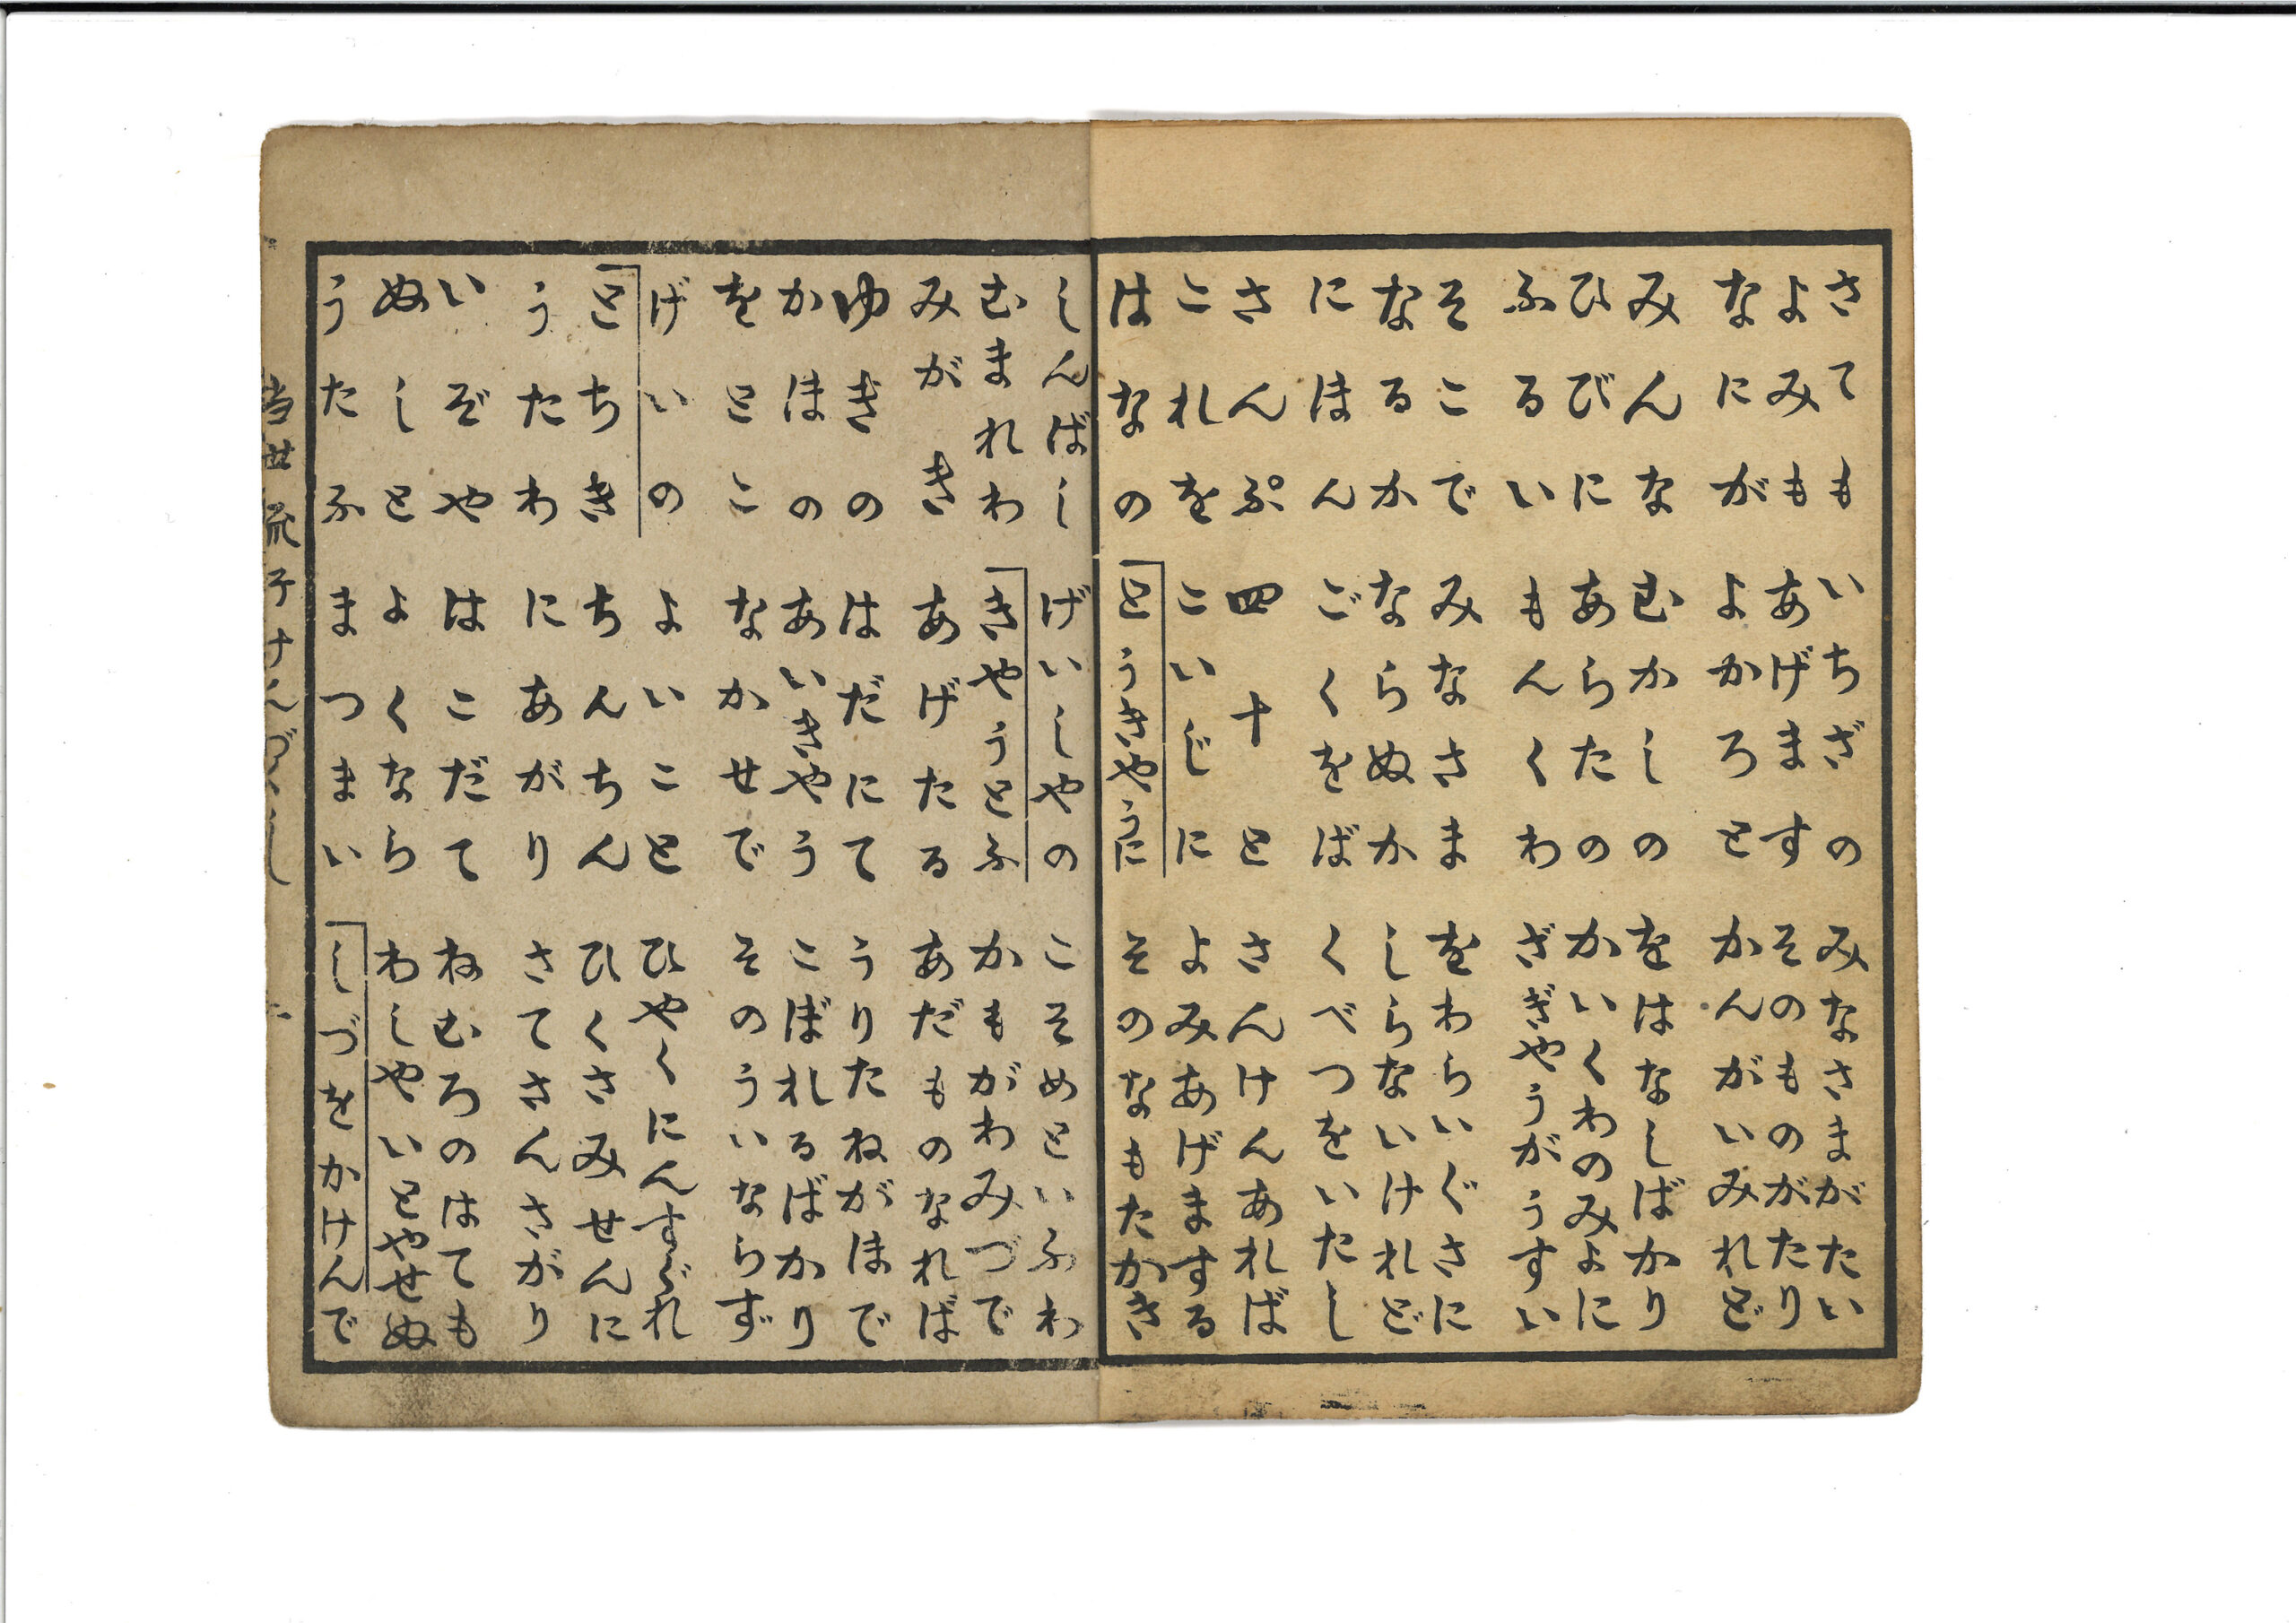 さてもいちざのみなさまがたい
よみもあげますそのものがたり
なにがよかろとかんがいみれど
みんなむかしのをはなしばかり
ひびにあらたのかいくわのみよに
ふるいもんくわざぎやうがうすい
そこでみなさまをわらいぐさに
なるかならぬかしらないけれど
にほんごくをばくべつをいたし
さんぷ四十とさんけんあれば
これをこいじによみあげまする
はなのとうきやうにそのなもたかき
しんばしげいしやのこそめといふわ
むまれわきやうとふかもがわみづで
みがきあげたるあだものなれば
ゆきのはだにてうりたねがほで
かほのあいきやうこぼれるばかり
をとこなかせでそのういならず
げいのよいことひやくにんすぐれ
とちきちんちんひくさみせんに
うたわにあがりさてさんさがり
いぞやはこだてねむろのはても
ぬしとよくならわしやいとやせぬ
うたふまつまいしづをかけんで
当世流子けんづくし